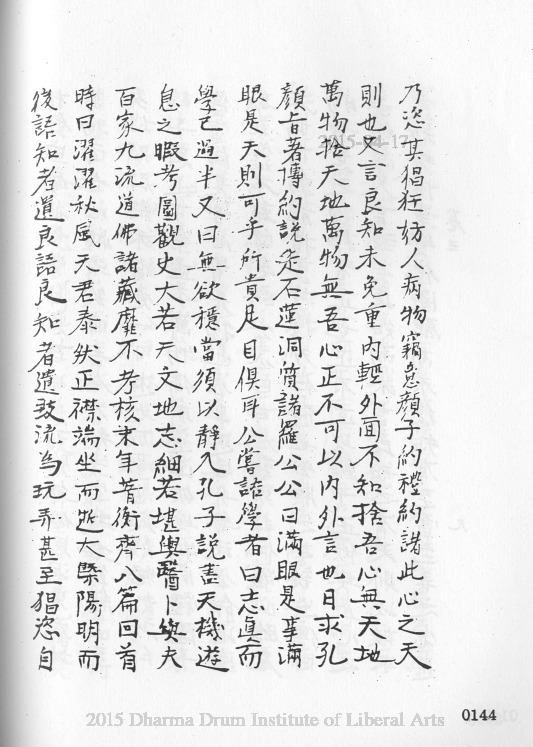 乃恣其猖狂妨人病物竊意顏子約禮約諸此心之天
則也又言良知未免重內輕外面不知捨吾心無天地
萬物捨天地萬物無吾心正不可以內外言也日求孔
顏旨著博約說走石蓮洞質諸羅公公曰滿眼是事滿
眼是天則可乎所貴足目俱耳公嘗語學者曰志真而
學已過半又曰無欲穩當須以靜入孔子說盡天機遊
息之暇考圖觀史大若天文地志細若堪輿醫卜與夫
百家九流道佛諸藏靡不考核末年著衡齊八篇回首
時曰濯濯秋風天君泰然正襟端坐而逝大槩陽明而
後語知者遺良語良知者遺致流為玩弄甚至猖恣自
2015-04-17
2015 Dharma Drum Institute of Liberal Arts
0144